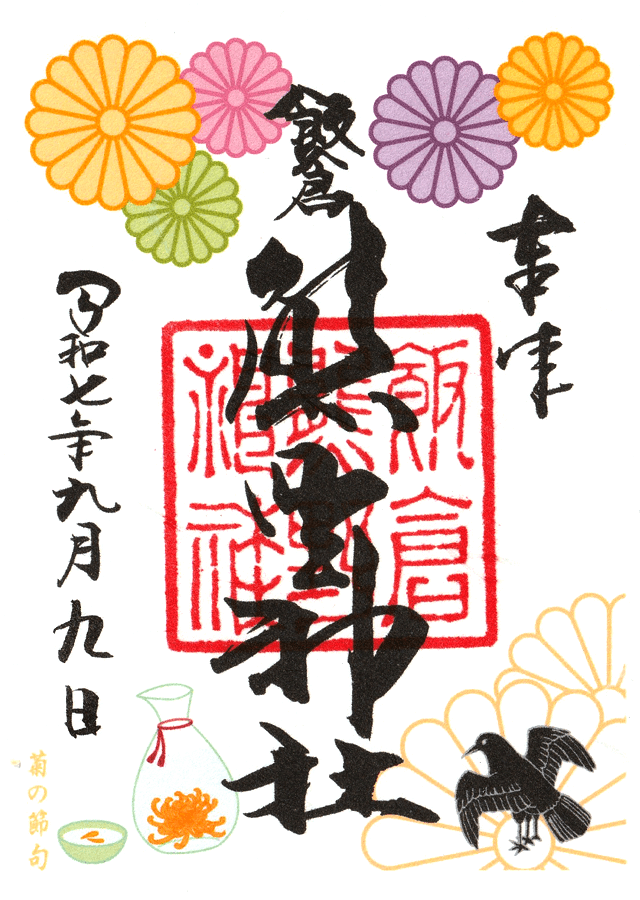 奉拝
飯倉
熊野神社
飯倉
熊野
神社
令和七年九月九日
菊の節句